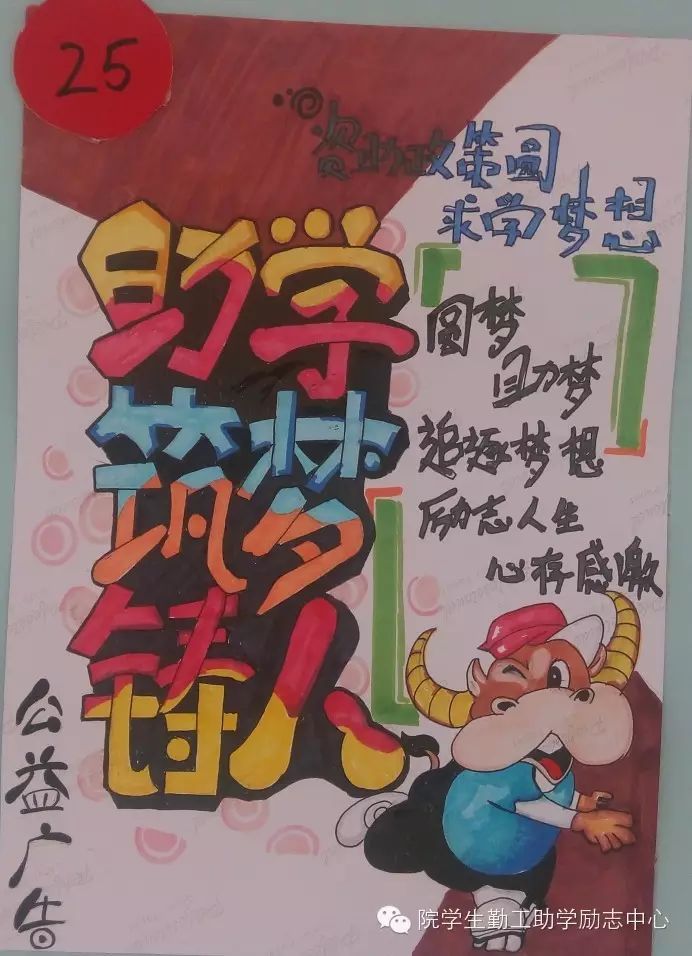 25
资助政策圆
求学梦想
助学
筑梦
铸人
圆梦
自力梦
追逐梦想
励志人生
心存感激
公益广告
院学生勤工助学励志中心